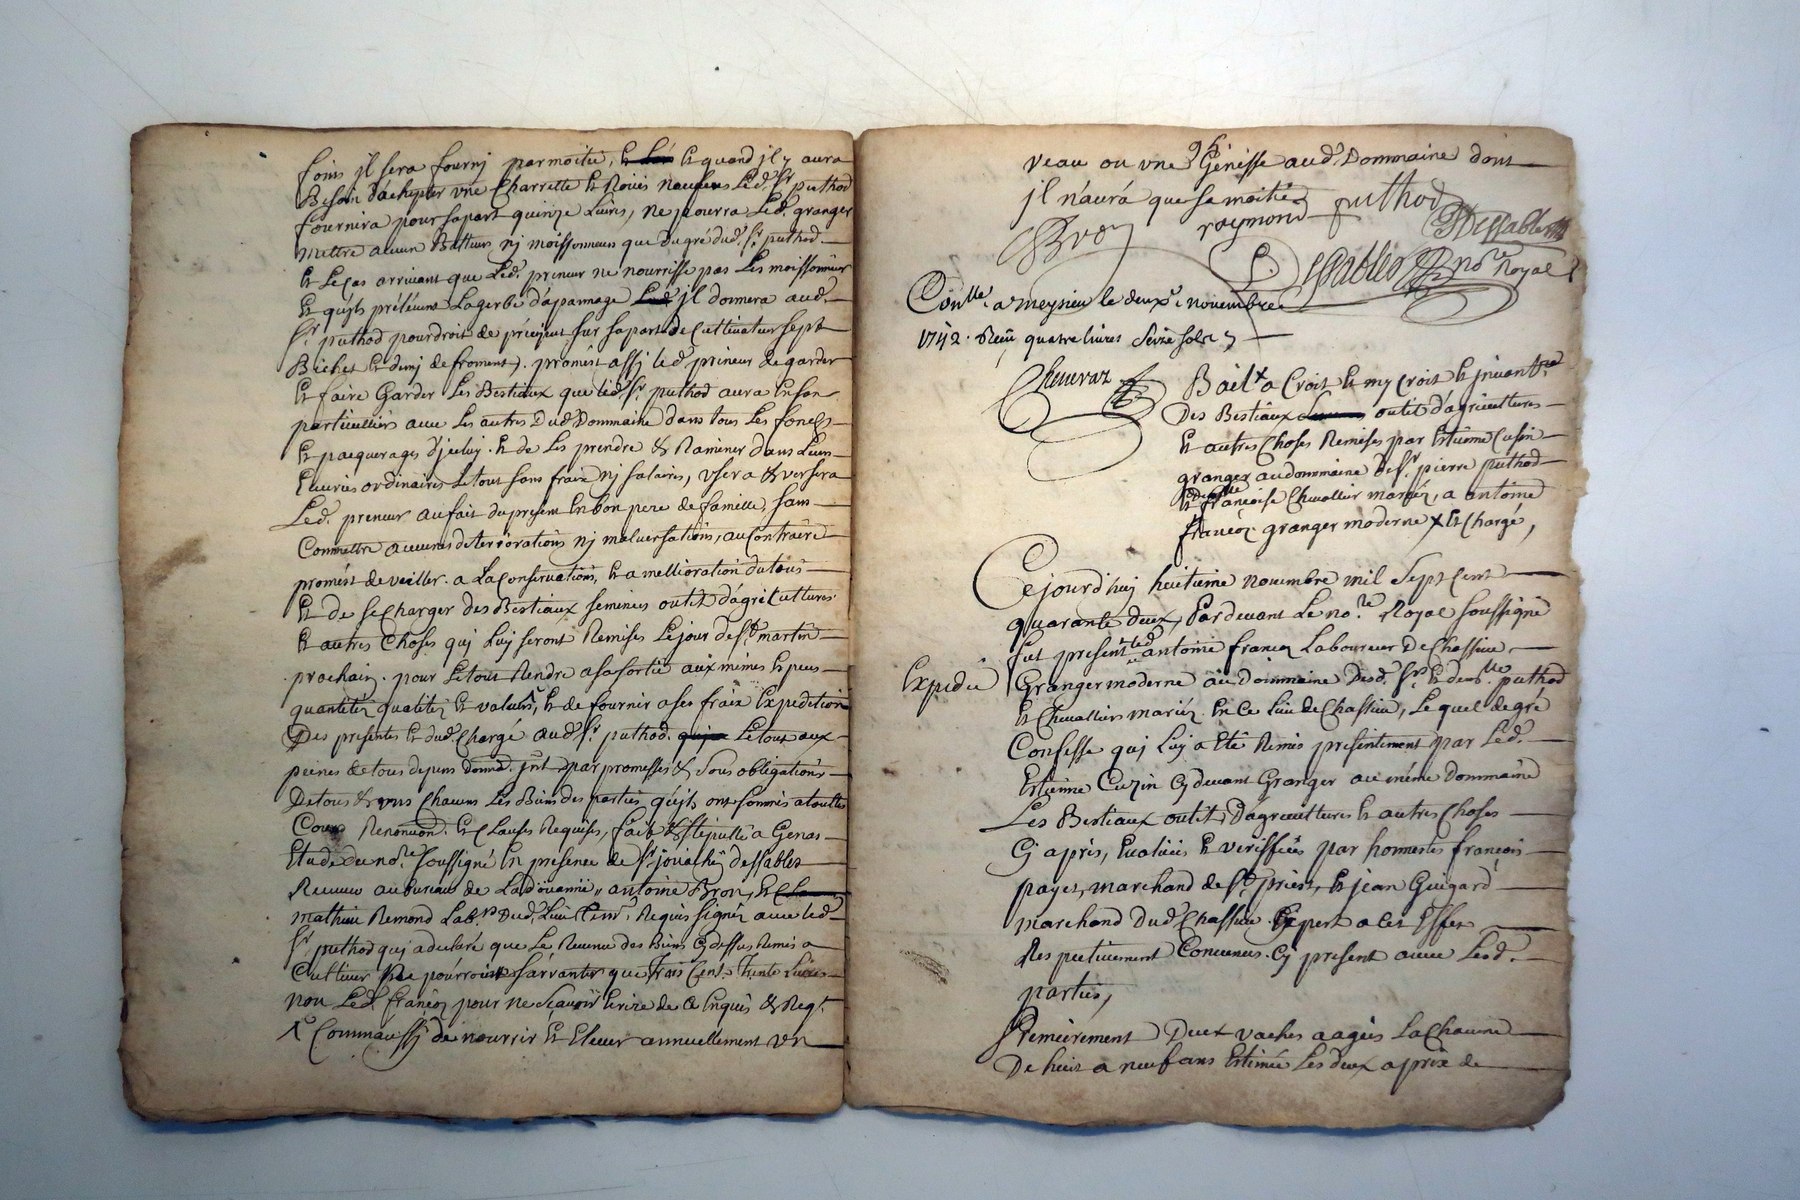 foins jl sera fourny par moitié, & quand jl y aura
Besoin d'achepter vne Charrette & Roües neufues Led. Sr puthod
fournira pour sa part quinze Liures, ne pourra Led. granger
mettre aucun Batteurs nj moissonneurs que du gré dud. Sr puthod.
& Le cas arriuant que Led. preneur ne nourrisse pas Les moissonneurs
& qu'jls préléuent La gerbe d'apannage jl donnera aud.
Sr puthod pour droit de préciput sur sa part de Cultiuateur sept
Bichet & demj de froment. promést assj led. preneur de garder
& faire Garder Les Bestiaux que led. Sr puthod aura En son
particulliers auec Les autres Dud. Dommaine dans tous Les fonds
& pacquerages d'jceluy. & de Les prendre & Raminer dans Leurs
Ecuries ordinaires Le tout sans fraix nj salaires, vsera & versera
Led. preneur au fait du present En bon pere de famille, sans
Commettre aucunes deterrorations nj maluersations, au Contraire
promést de veiller a La Conseruation, & amellioration du tous
& de se Charger des Bestiaux semences outils d'agricultures
& autres Choses quj Luj seront Remises Le jour de St martin
prochain. pour Le tout Rendre a sa sortie aux mémes & pces
quantités qualités & valeurs, & de fournir a ses fraix Expedition
Des presentes & dud. Chargé aud. Sr puthod. Le tout aux
peines de tous depens domd. jnt par promesses & sous obligations
De tous & vns Chacuns Les Biens des parties qu'jls ont soumis a toultes
Cours Renonson. & Clauses Requises, fait & stipullé a Genas
Etude du nore. soussigné En presence de Sr joüachin dessables
Receueur au bureau de La doüanne, antoine Bron, &
mathieu Remond Labrs Dud. Lieu temr. Requis signés auec led.
Sr puthod quj a declaré que Le Reuenu des Biens Cy dessus Remis a
Cultiuer Ne pourroint s'arranter que Trois Cents Trente Liures
non Led. françon pour ne Sçauoir Ecrire de Ce Enquis & Reqt.
Comm'aussj de nourrir & Eleuer annuellement vn
veau ou vne Génisse aud. Dommaine dont
jl n'aurá que sa moitié
Bron raymond puthod
JDessables
Sables nore Royal
Conlle. a meysieu le deuxe. nouembre
1742. Reçu quatre liures Seize sols
Cheuraz
Bail a Croit & my Croit & jnuantre
Des Bestiaux outils d'agricultures
& autres Choses Remises par Estienne Cusin
granger au dommaine de Sr. pierre puthod
& delle françoise Cheuallier mariés, a antoine
françon granger moderne & Chargé,
Ce jourd'huj huitieme nouembre mil Sept Cent
quarante deux, Pardeuant Le nore. Royal soussigné
fut present led. antoine françon Laboureur De Chassieu,
Expedié
Granger moderne au Dommaine Desd. Sr. & demlle. puthod
& Cheualliers mariés En Ce Lieu de Chassieu, Lequel de gré
Confesse quj Luy a Eté Remis presentement par Led.
Estienne Cuzin Cj deuant Granger au méme Dommaine
Les Bestiaux outils D'agricultures & autres Choses
Cj aprés, Eualuées & veriffiées par honnestes françois
payet, marchand de St. priest, & jean Guigard
marchand Dud. Chassieu Expert a Cet Effet
Respectiuement Conuenus. Cj present auec Lesd.
parties,
Premierement Deux vaches aagées La Chacune
De huit a neuf ans Estimée Les deux a prix de